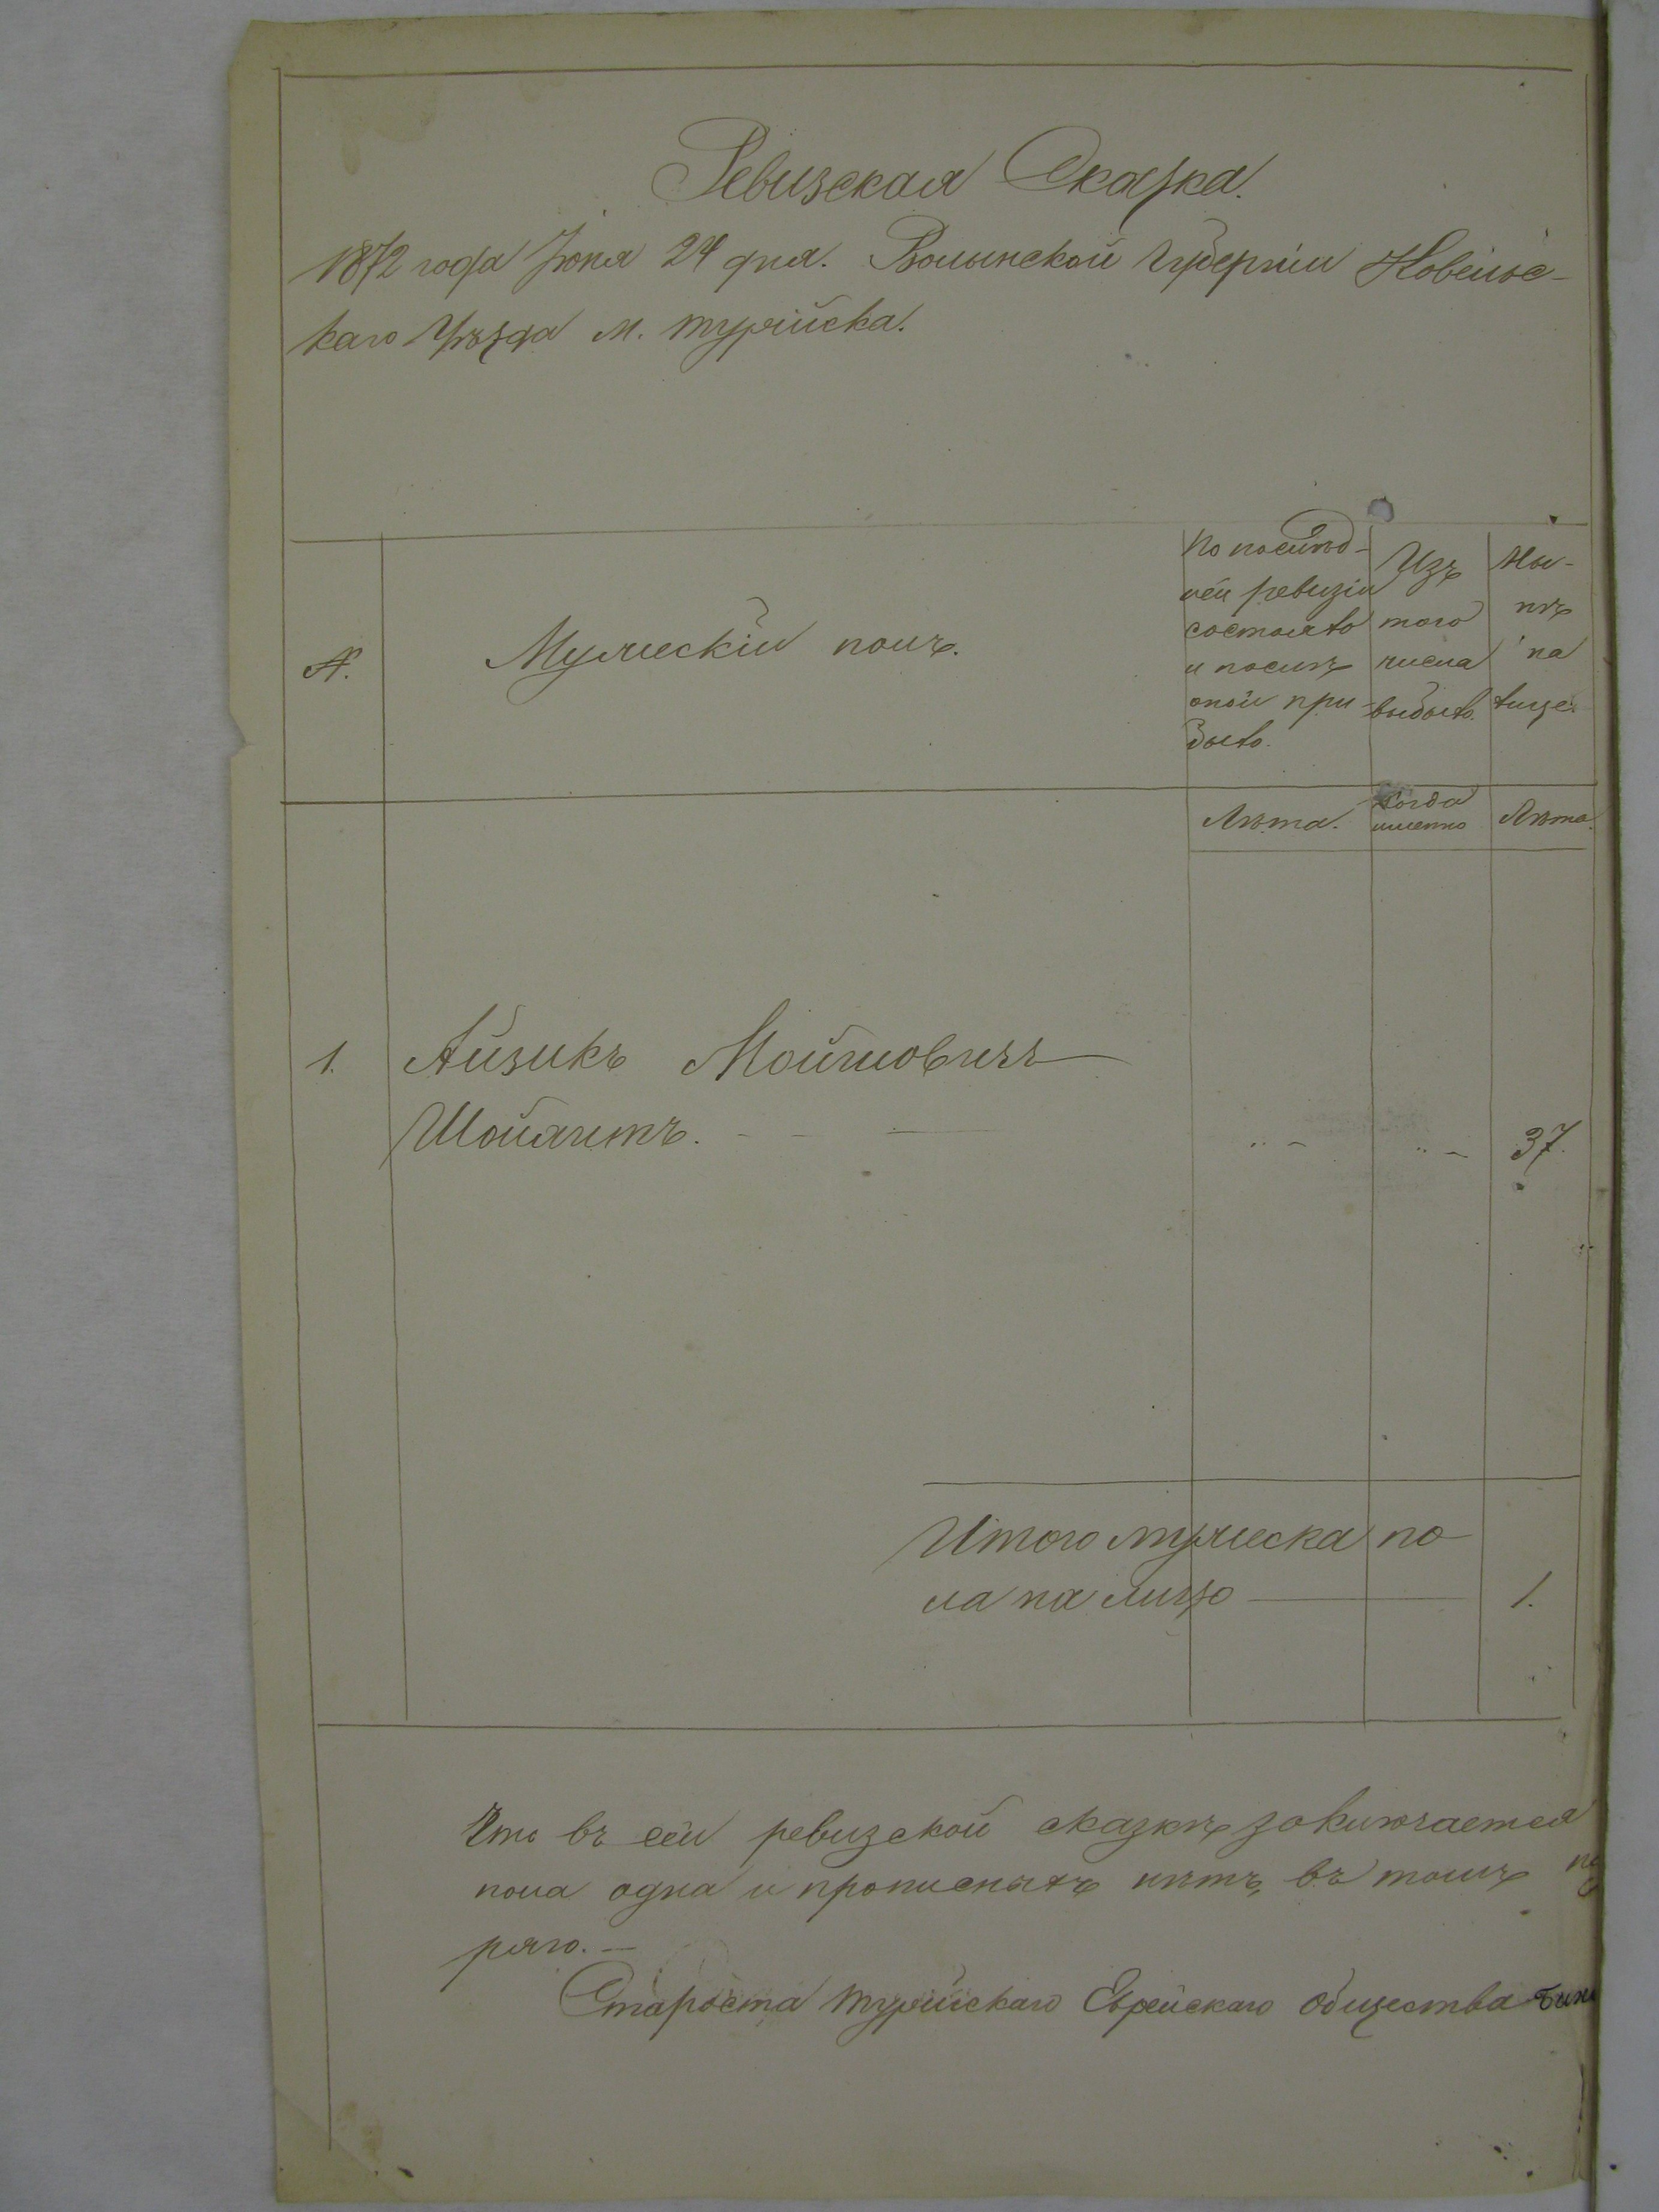 Ревизская Сказка.
1872 года Іюня 24 дня. Волынской Губерніи Ковельс-
каго Уѣзда м. Турійска.
№.
Мужескій полъ.
По послѣд-
ней ревизіи
состояло
и послѣ
оной при-
было.
Изъ
того
числа
выбыло.
Ны-
нѣ
на
лице.
Лѣта.
Когда
именно
Лѣта.
1. Айзикъ Мойшовичъ
Шойхитъ. 37.
Итого мужеска по
ла на лицо 1.
Что въ сей ревизской сказкѣ заключается
пола одна и прописныхъ нѣтъ, въ томъ
ряю. —
Староста Турійскаго Еврейскаго Общества